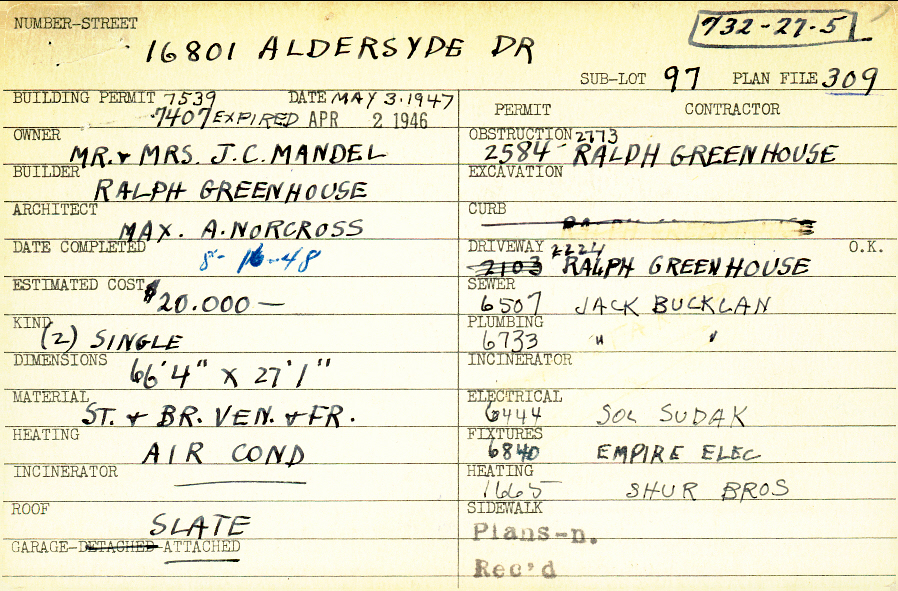 NUMBER-STREET
732-27-5
16801 ALDERSYDE DR
SUB-LOT 97 PLAN FILE 309
BUILDING PERMIT 7539 DATE MAY 3.1947
7407 EXPIRED APR 2 1946
OWNER
MR. & MRS. J.C. MANDEL
BUILDER
RALPH GREENHOUSE
ARCHITECT
MAX. A. NORCROSS
DATE COMPLETED
8-16-48
ESTIMATED COST
$20.000 —
KIND
(2) SINGLE
DIMENSIONS
66'4" X 27'1"
MATERIAL
ST. & BR. VEN. & FR.
HEATING
AIR COND
INCINERATOR
ROOF
SLATE
GARAGE-DETACHED-ATTACHED
PERMIT CONTRACTOR
OBSTRUCTION 2773
2584 RALPH GREENHOUSE
EXCAVATION
CURB
DRIVEWAY 2224 O.K.
2103 RALPH GREENHOUSE
SEWER
6507 JACK BUCKLAN
PLUMBING
6733 " "
INCINERATOR
ELECTRICAL
6444 SOL SUDAK
FIXTURES
6840 EMPIRE ELEC
HEATING
1665 SHUR BROS
SIDEWALK
Plans-n.
Rec'd